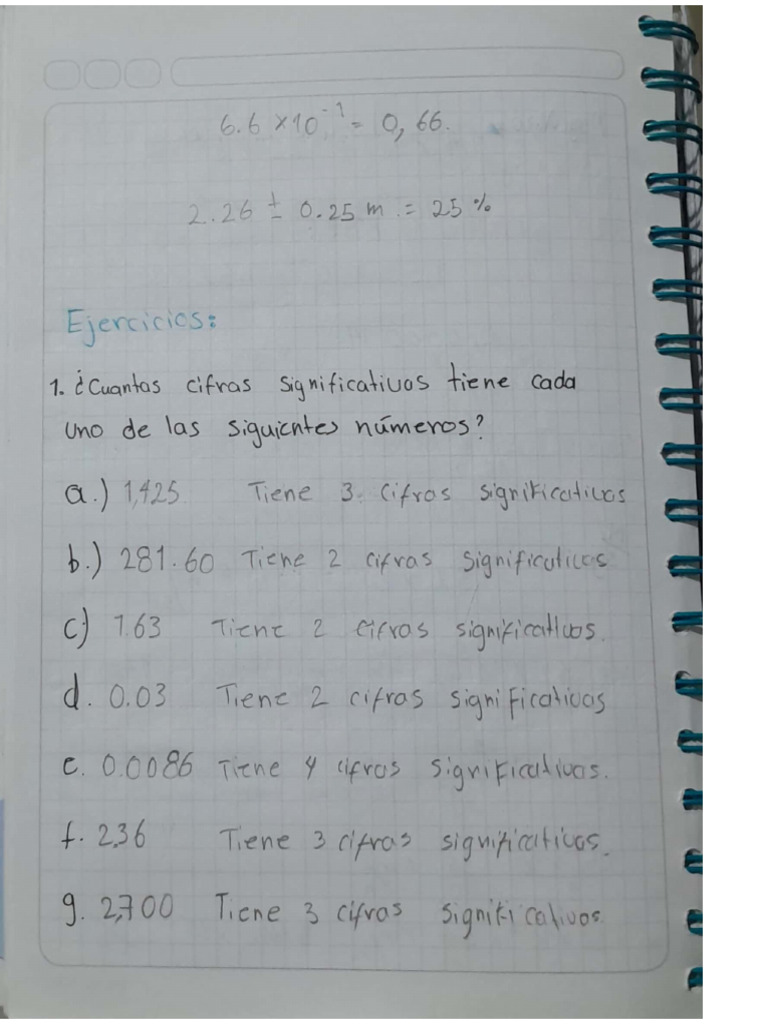 6.6 x 10⁻¹ = 0,66.
2.26 ± 0.25 m = 25 %
Ejercicios:
1. ¿Cuantas cifras significativas tiene cada
uno de las siguientes números?
a.) 1,425 Tiene 3 cifras significativas
b.) 281.60 Tiene 2 cifras significativas
c) 7.63 Tiene 2 cifras significativas.
d. 0.03 Tiene 2 cifras significativas
e. 0.0086 Tiene 4 cifras significativas.
f. 2,36 Tiene 3 cifras significativas.
g. 2,700 Tiene 3 cifras significativas